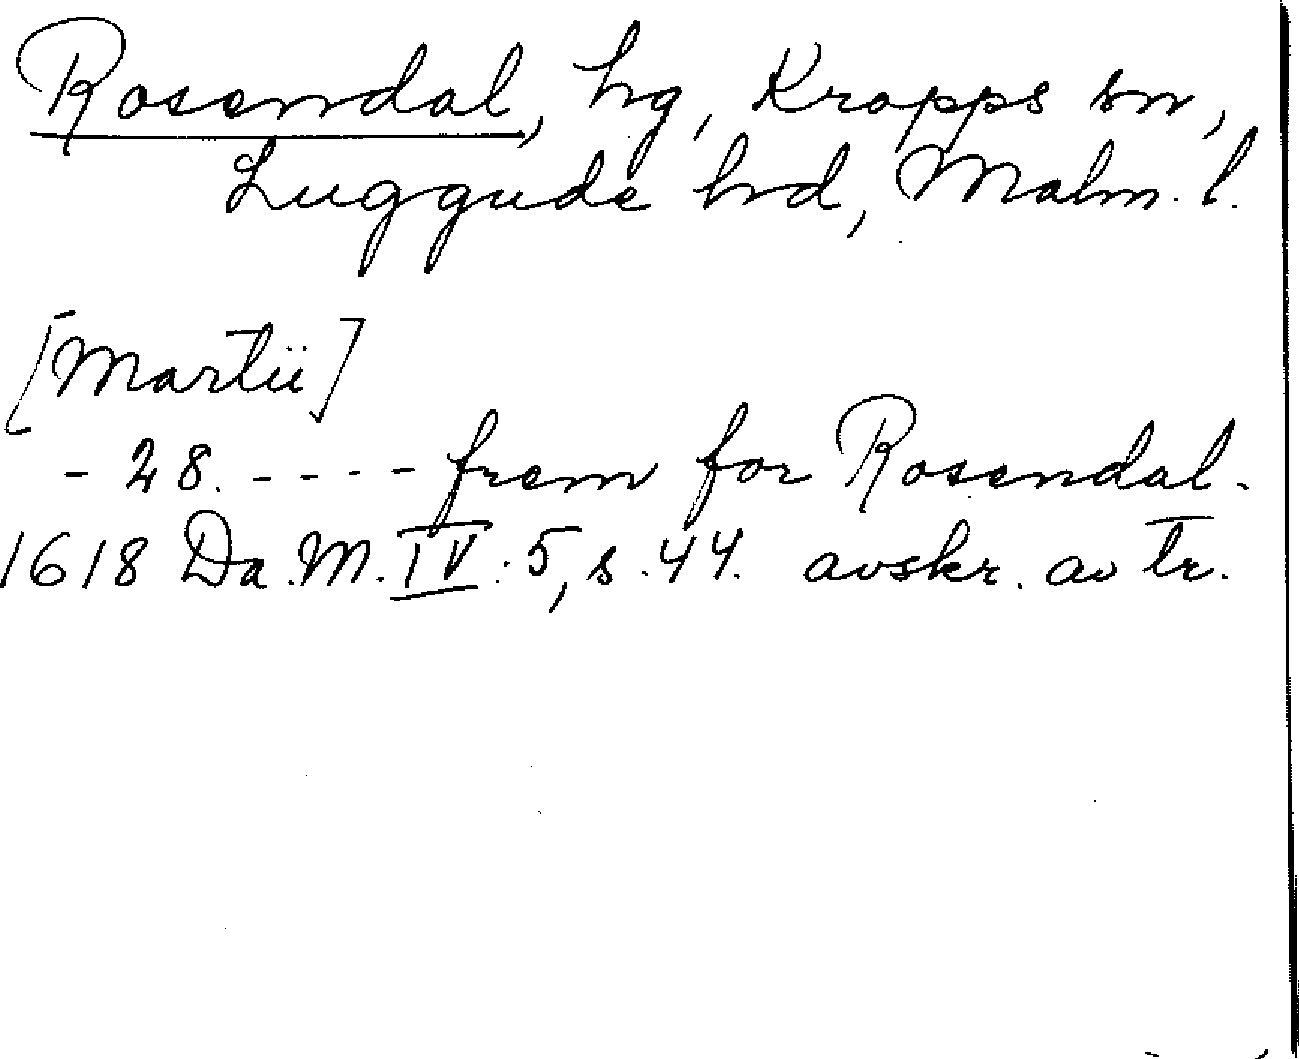 Rosendal, hg, Kropps sn,
Luggude hrd, Malm. l.
[Martii]
- 28. - - - - frem for Rosendal.
1618 Da. M. IV: 5, s. 44. avskr. av tr.